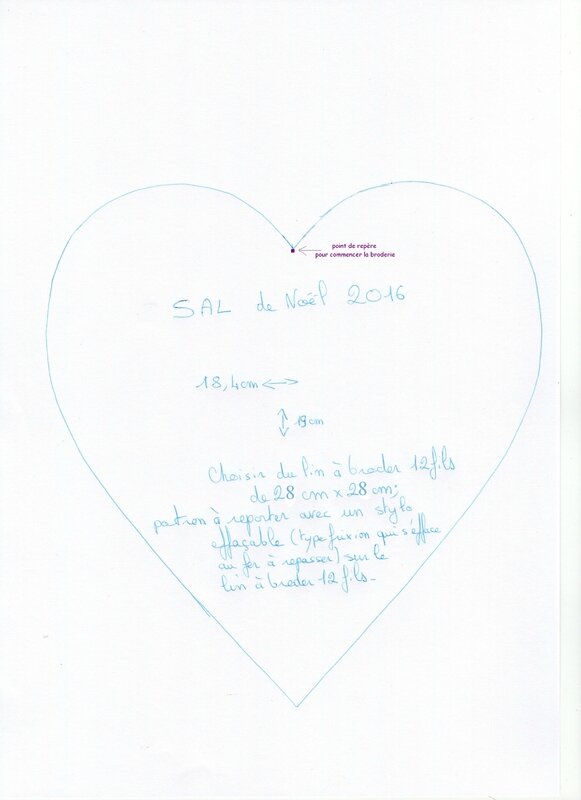 point de repère
pour commencer la broderie
SAL de Noël 2016
18,4cm
19cm
Choisir du lin à broder 12 fils
de 28 cm x 28 cm;
patron à reporter avec un stylo
effaçable (type frixion qui s'efface
au fer à repasser) sur le
lin à broder 12 fils.